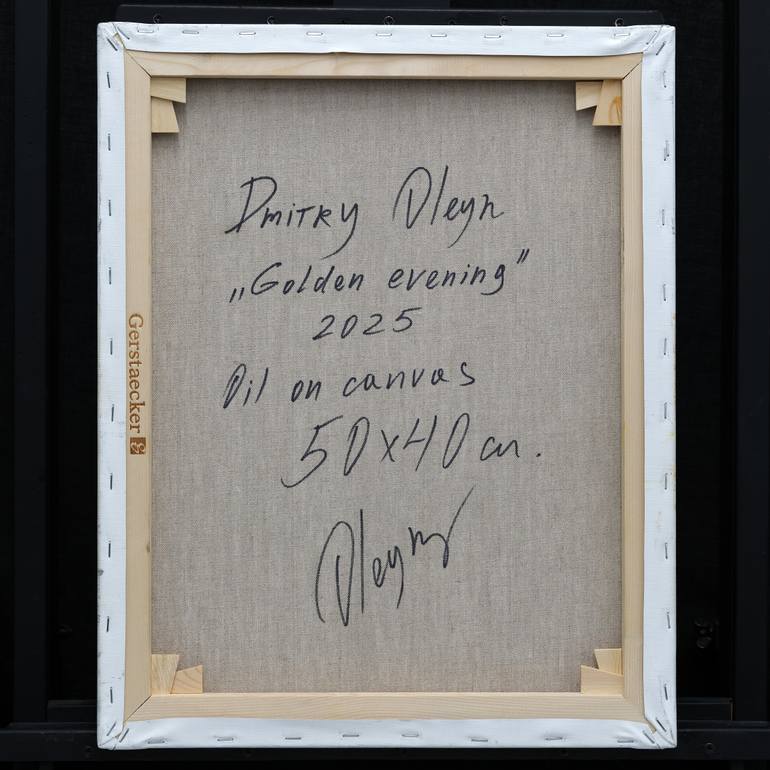 Dmitry Oleyn
„Golden evening”
2025
Oil on canvas
50x40 cm.
Oleyn
Gerstaecker